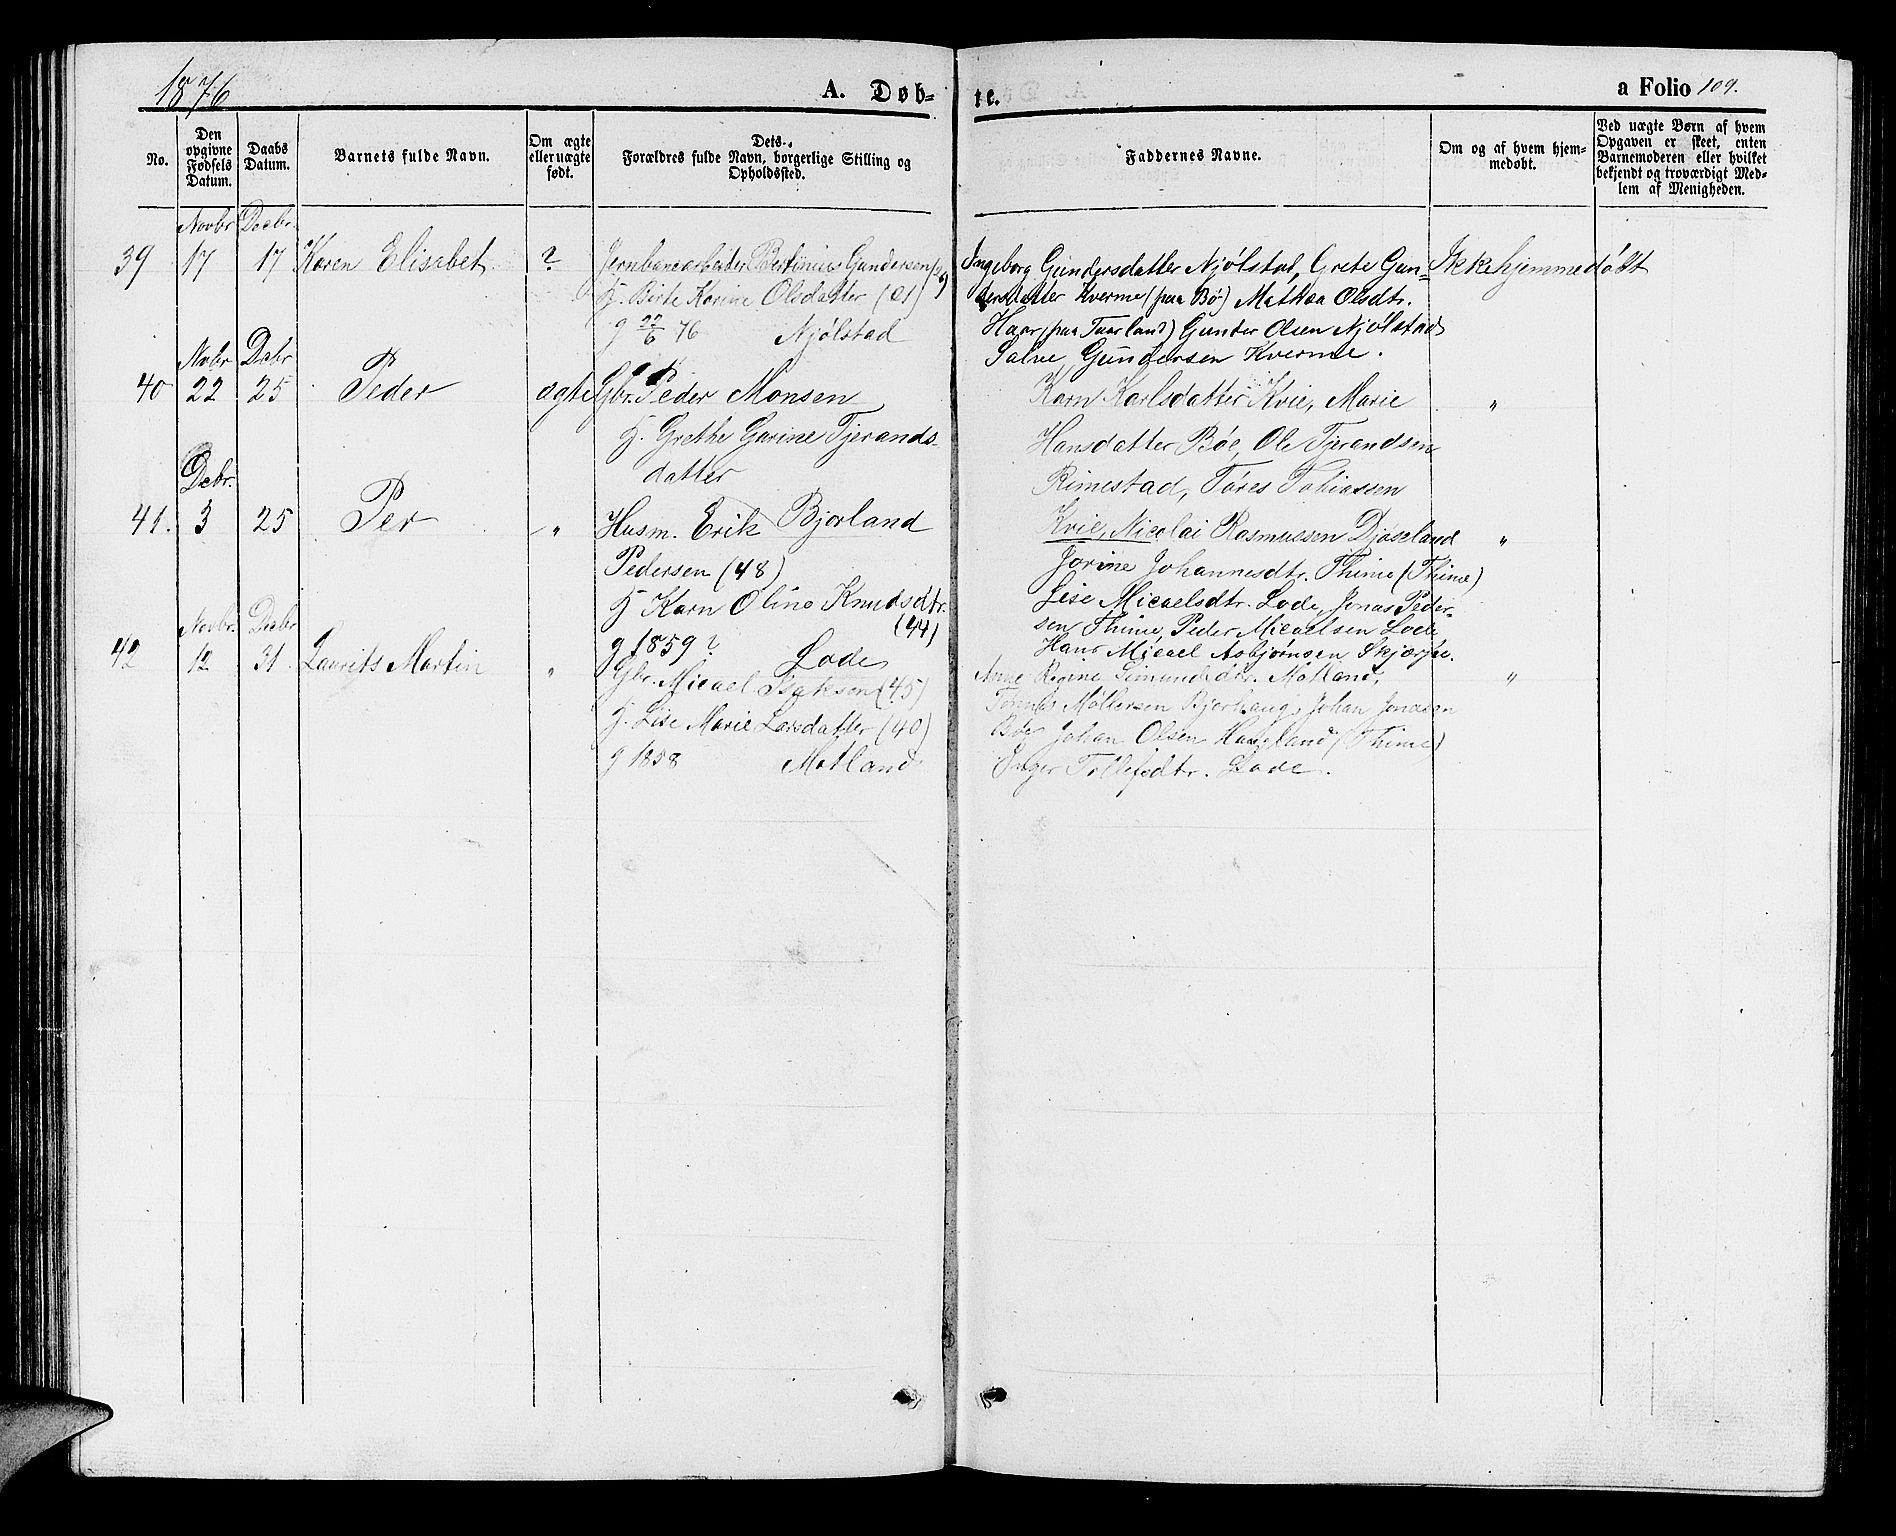 1876
A. Døb-
te.
a Folio 109.
No.
Den opgivne Fødsels Datum.
Daabs Datum.
Barnets fulde Navn.
Om ægte eller uægte født.
Dets
Forældres fulde Navn, borgerlige Stilling og
Opholdssted.
Faddernes Navne.
Om og af hvem hjem-
medøbt.
Ved uægte Børn af hvem
Opgaven er skeet, enten
Barnemoderen eller hvilket
bekjendt og troværdigt Med-
lem af Menigheden.
Novbr Decbr
39 17 17 Karen Elisabet ? Jernbanearbeider Bertinius Gundersen
H. Birte Karine Olsdatter (21)
g 22/6 76 Njølstad
Ingeborg Gundersdatter Njølstad, Grete Gun-
dersdatter Kverme (paa Bø) Mathea Olsdtr.
Haar, (paa Taarland) Gunder Olsen Njølstad
Salve Gundersen Kverme.
Ikke hjemmedøbt
Novbr Debr
40 22 25 Peder ægte Gbr. Peder Monsen
H. Grethe Gurine Tjerands-
datter
Bjorland
Karn Karlsdatter Kvie, Marie
Hansdatter Bøe, Ole Tjerandsen
Rimestad, Tøres Tobiassen
Kvie, Nicolai Rasmussen Djøseland
"
Debr.
41. 3 25 Per " Husm. Erik
Pedersen (48)
H Karn Oline Knudsdtr.
(44)
g 1859? Lode
Jorine Johannesdtr. Thime (Thime)
Lise Micaelsdtr. Lode, Jonas Peder-
sen Thime, Peder Micaelsen Lode
Hans Micael Asbjørnsen Skjærpe.
"
Novbr. Decbr
42 12 31. Laurits Martin " Gbr. Micael Isaksen (45)
H. Lise Marie Larsdatter (40)
g 1858 Motland
Anne Regine Simundsdtr. Motland,
Tønnes Møllersen Bjerhaug, Johan Jonassen
Bøe Johan Olsen Haugland (Thime)
Inger Tollefsdtr. Lode.
"